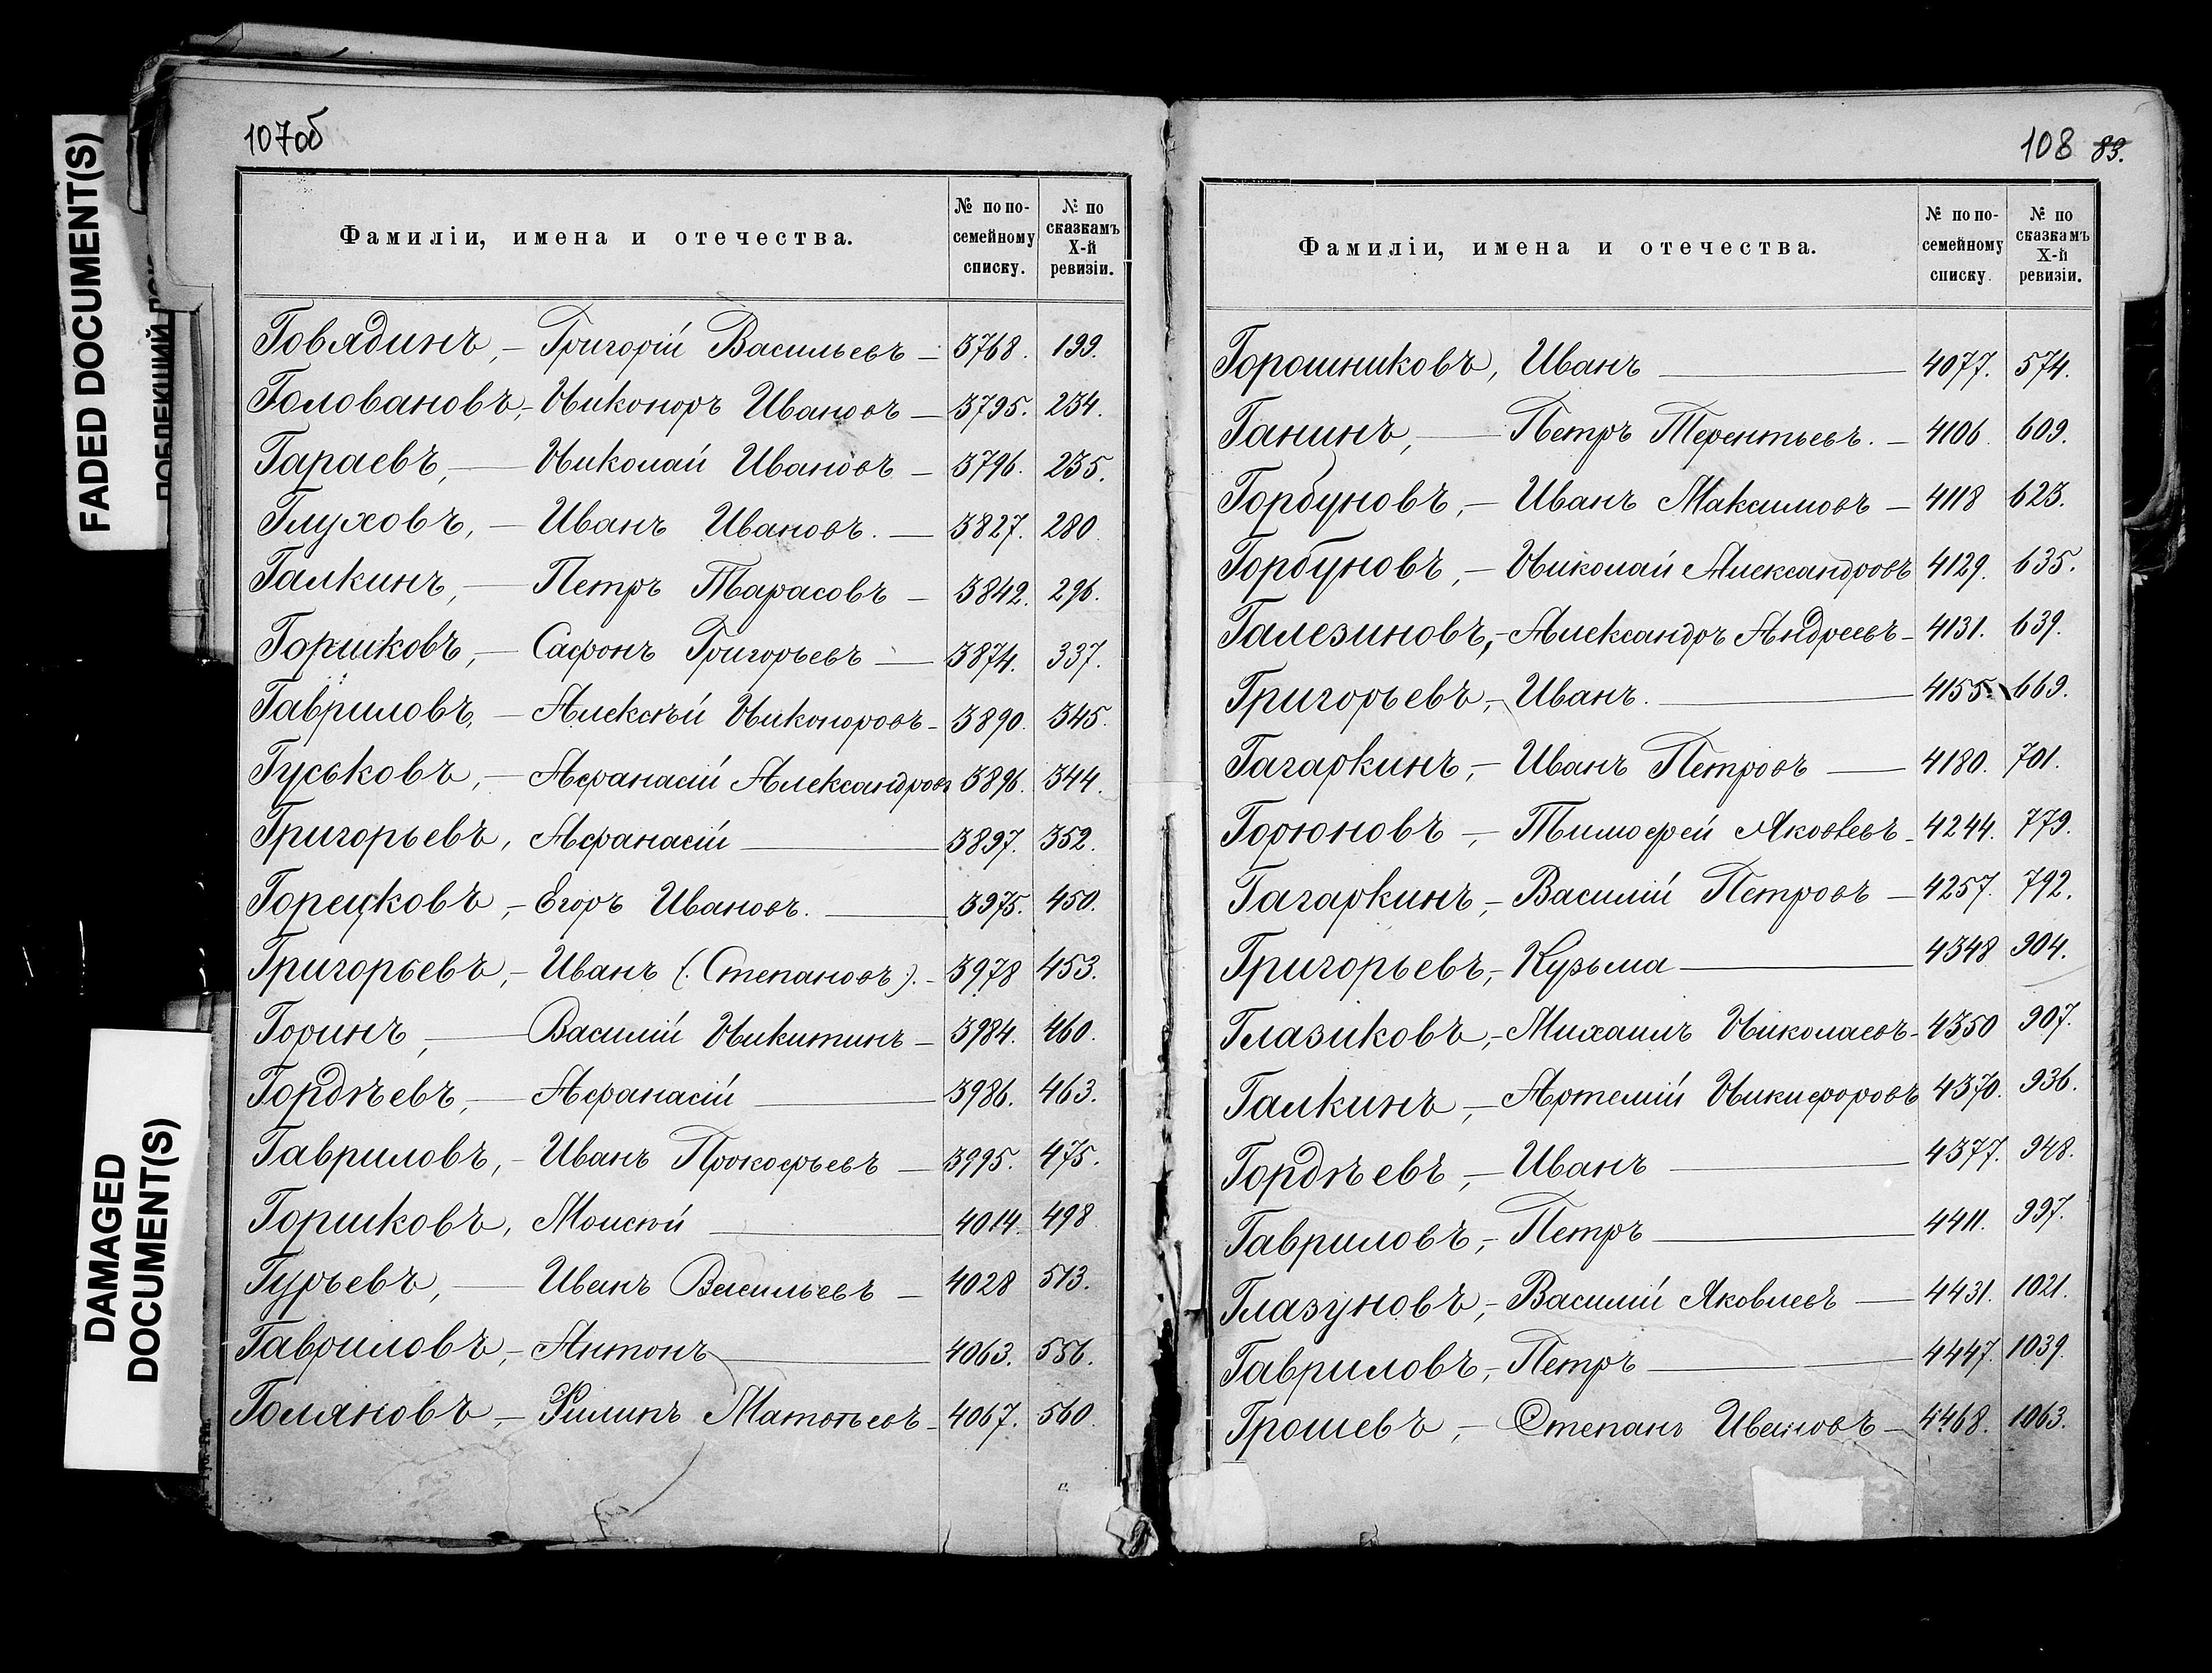 FADED DOCUMENT(S)
DAMAGED
DOCUMENT(S)
107об
Фамиліи, имена и отечества.
№ по по-
семейному
списку.
№ по
сказкамъ
X-й
ревизіи.
Говядинъ, — Григорій Васильевъ — 3768. 199.
Головановъ, — Никоноръ Ивановъ — 3795. 234.
Гараевъ, — Николай Ивановъ — 3796. 235.
Глуховъ, — Иванъ Ивановъ. — 3827. 280
Галкинъ, — Петръ Тарасовъ — 3842. 296.
Горшковъ, — Сафонъ Григорьевъ — 3874. 337.
Гавриловъ, — Алексѣй Никоноровъ — 3890. 345.
Гуськовъ, — Афанасій Александровъ 3896. 344.
Григорьевъ, Афанасій — 3897. 352.
Горецковъ, — Егоръ Ивановъ. — 3975. 450.
Григорьевъ, — Иванъ (Степановъ). — 3978 453.
Горинъ, — Василій Никитинъ — 3984. 460.
Гордѣевъ, — Афанасій — 3986. 463.
Гавриловъ, — Иванъ Прокофьевъ — 3995. 475.
Горшковъ, Моисей — 4014. 498
Гурьевъ, — Иванъ Васильевъ — 4028 513.
Гавриловъ, — Антонъ — 4063. 556.
Голяновъ, — Филипъ Матвѣевъ — 4067. 560.
108 83.
Фамиліи, имена и отечества.
№ по по-
семейному
списку.
№ по
сказкамъ
X-й
ревизіи.
Горошниковъ, Иванъ — 4077. 574.
Ганинъ, — Петръ Терентьевъ. — 4106. 609.
Горбуновъ, — Иванъ Максимовъ — 4118 623.
Горбуновъ, — Николай Александровъ 4129. 635.
Галезиновъ, — Александръ Андреевъ — 4131. 639.
Григорьевъ, — Иванъ. — 4155. 669.
Гагаркинъ, — Иванъ Петровъ — 4180. 701.
Горюновъ, — Тимофей Яковлевъ — 4244. 779.
Гагаркинъ, — Василій Петровъ — 4257. 792.
Григорьевъ, — Кузьма — 4348 904.
Глазиковъ, — Михаилъ Николаевъ — 4350 907.
Галкинъ, — Артемій Никифоровъ 4370. 936.
Гордѣевъ, — Иванъ — 4377. 948.
Гавриловъ, — Петръ — 4411. 997.
Глазуновъ, — Василій Яковлевъ — 4431. 1021.
Гавриловъ, — Петръ — 4447. 1039.
Грошевъ, — Степанъ Ивановъ — 4468. 1063.